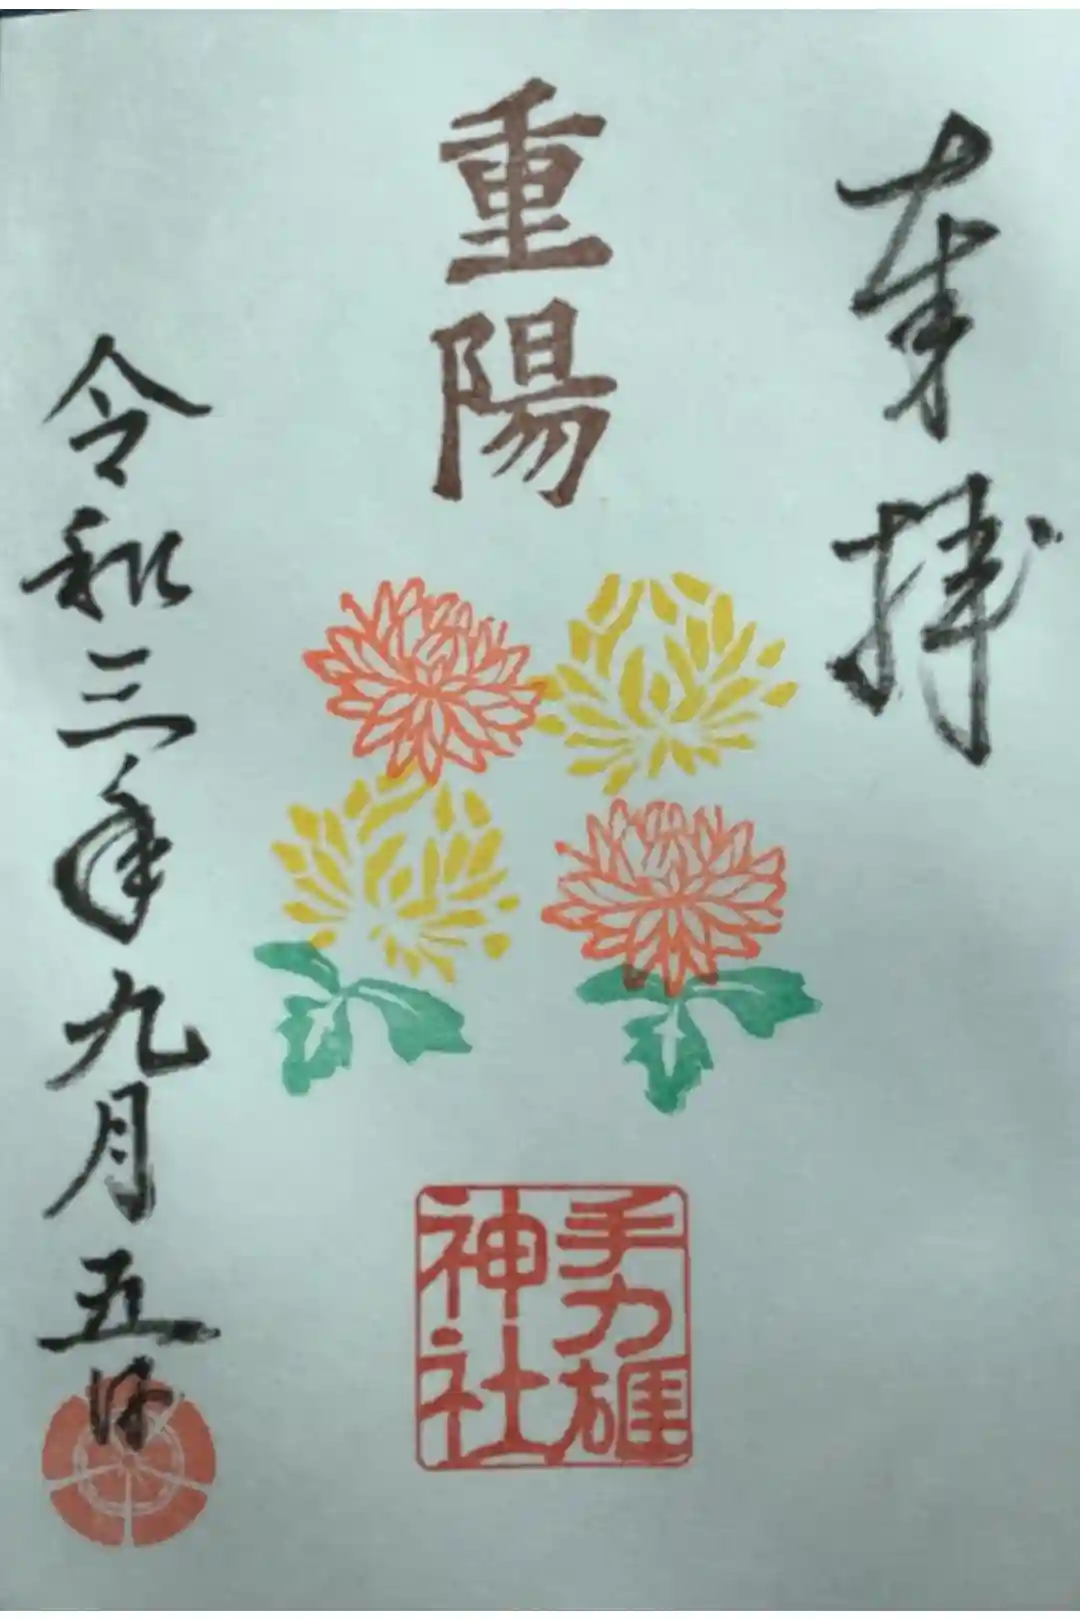 奉拝
重陽
手力雄
神社
令和三年九月五日